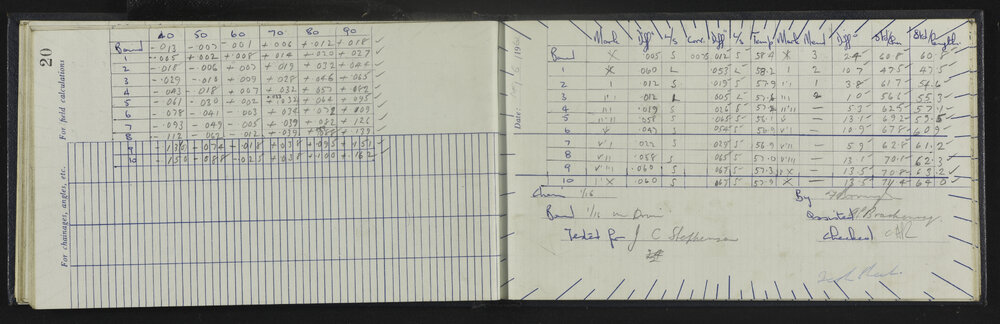 20
For field calculations
For chainages, angles, etc.
40 50 60 70 80 90
Band -013 -007 -001 +006 +012 +018
1 -005 +002 +008 +014 +020 +027
2 -018 -006 +007 +019 +032 +044
3 -029 -010 +009 +028 +046 +065
4 -043 -018 +007 +032 +057 +082
5 -061 -030 +002 +032 +064 +095
6 -078 -041 -003 +034 +072 +109
7 -093 -049 -005 +039 +082 +126
8 -112 -062 -012 +039 +139
9 -131 -074 -018 +038 +095 +151
10 -150 -088 -025 +038 +100 +162
Date:
Mark Diffce L/S Corr. Diffce L/S Temp Mark Mand Diffce Std Tem Std Length
Band X 005 S 0075 012 S 58.4 X 3 24 60.8 60.5
1 X 060 L 053 L 58.2 1 2 10.7 47.5 47.5
2 1 012 S 019 S 57.9 11 1 3.8 61.7 54.6
3 11 012 L 005 L 111
4 111 019 S 026 S — 5.3 62.5 57.1
5 1111 058 S 065 S 56.1 V — 13.1 69.2 59.5
6 V 047 S 054 S 56.9 V1 — 10.9 67.8 60.9
7 V1 022 S 029 S 56.9 V11 — 5.9 62.8 61.2
8 V11 .058 S 065 S 57.0 V111 — 13.1 70.1 62.3
9 V111 .060 S 067 S 57.3 1X — 13.5 70.8 63.2
10 1X .060 S 067 S 57.9 X — 13.5 71.4 64.0
Chain 1/16 By
Band 1/16 on Drum Assisted
Tested for J C Stephenson Checked